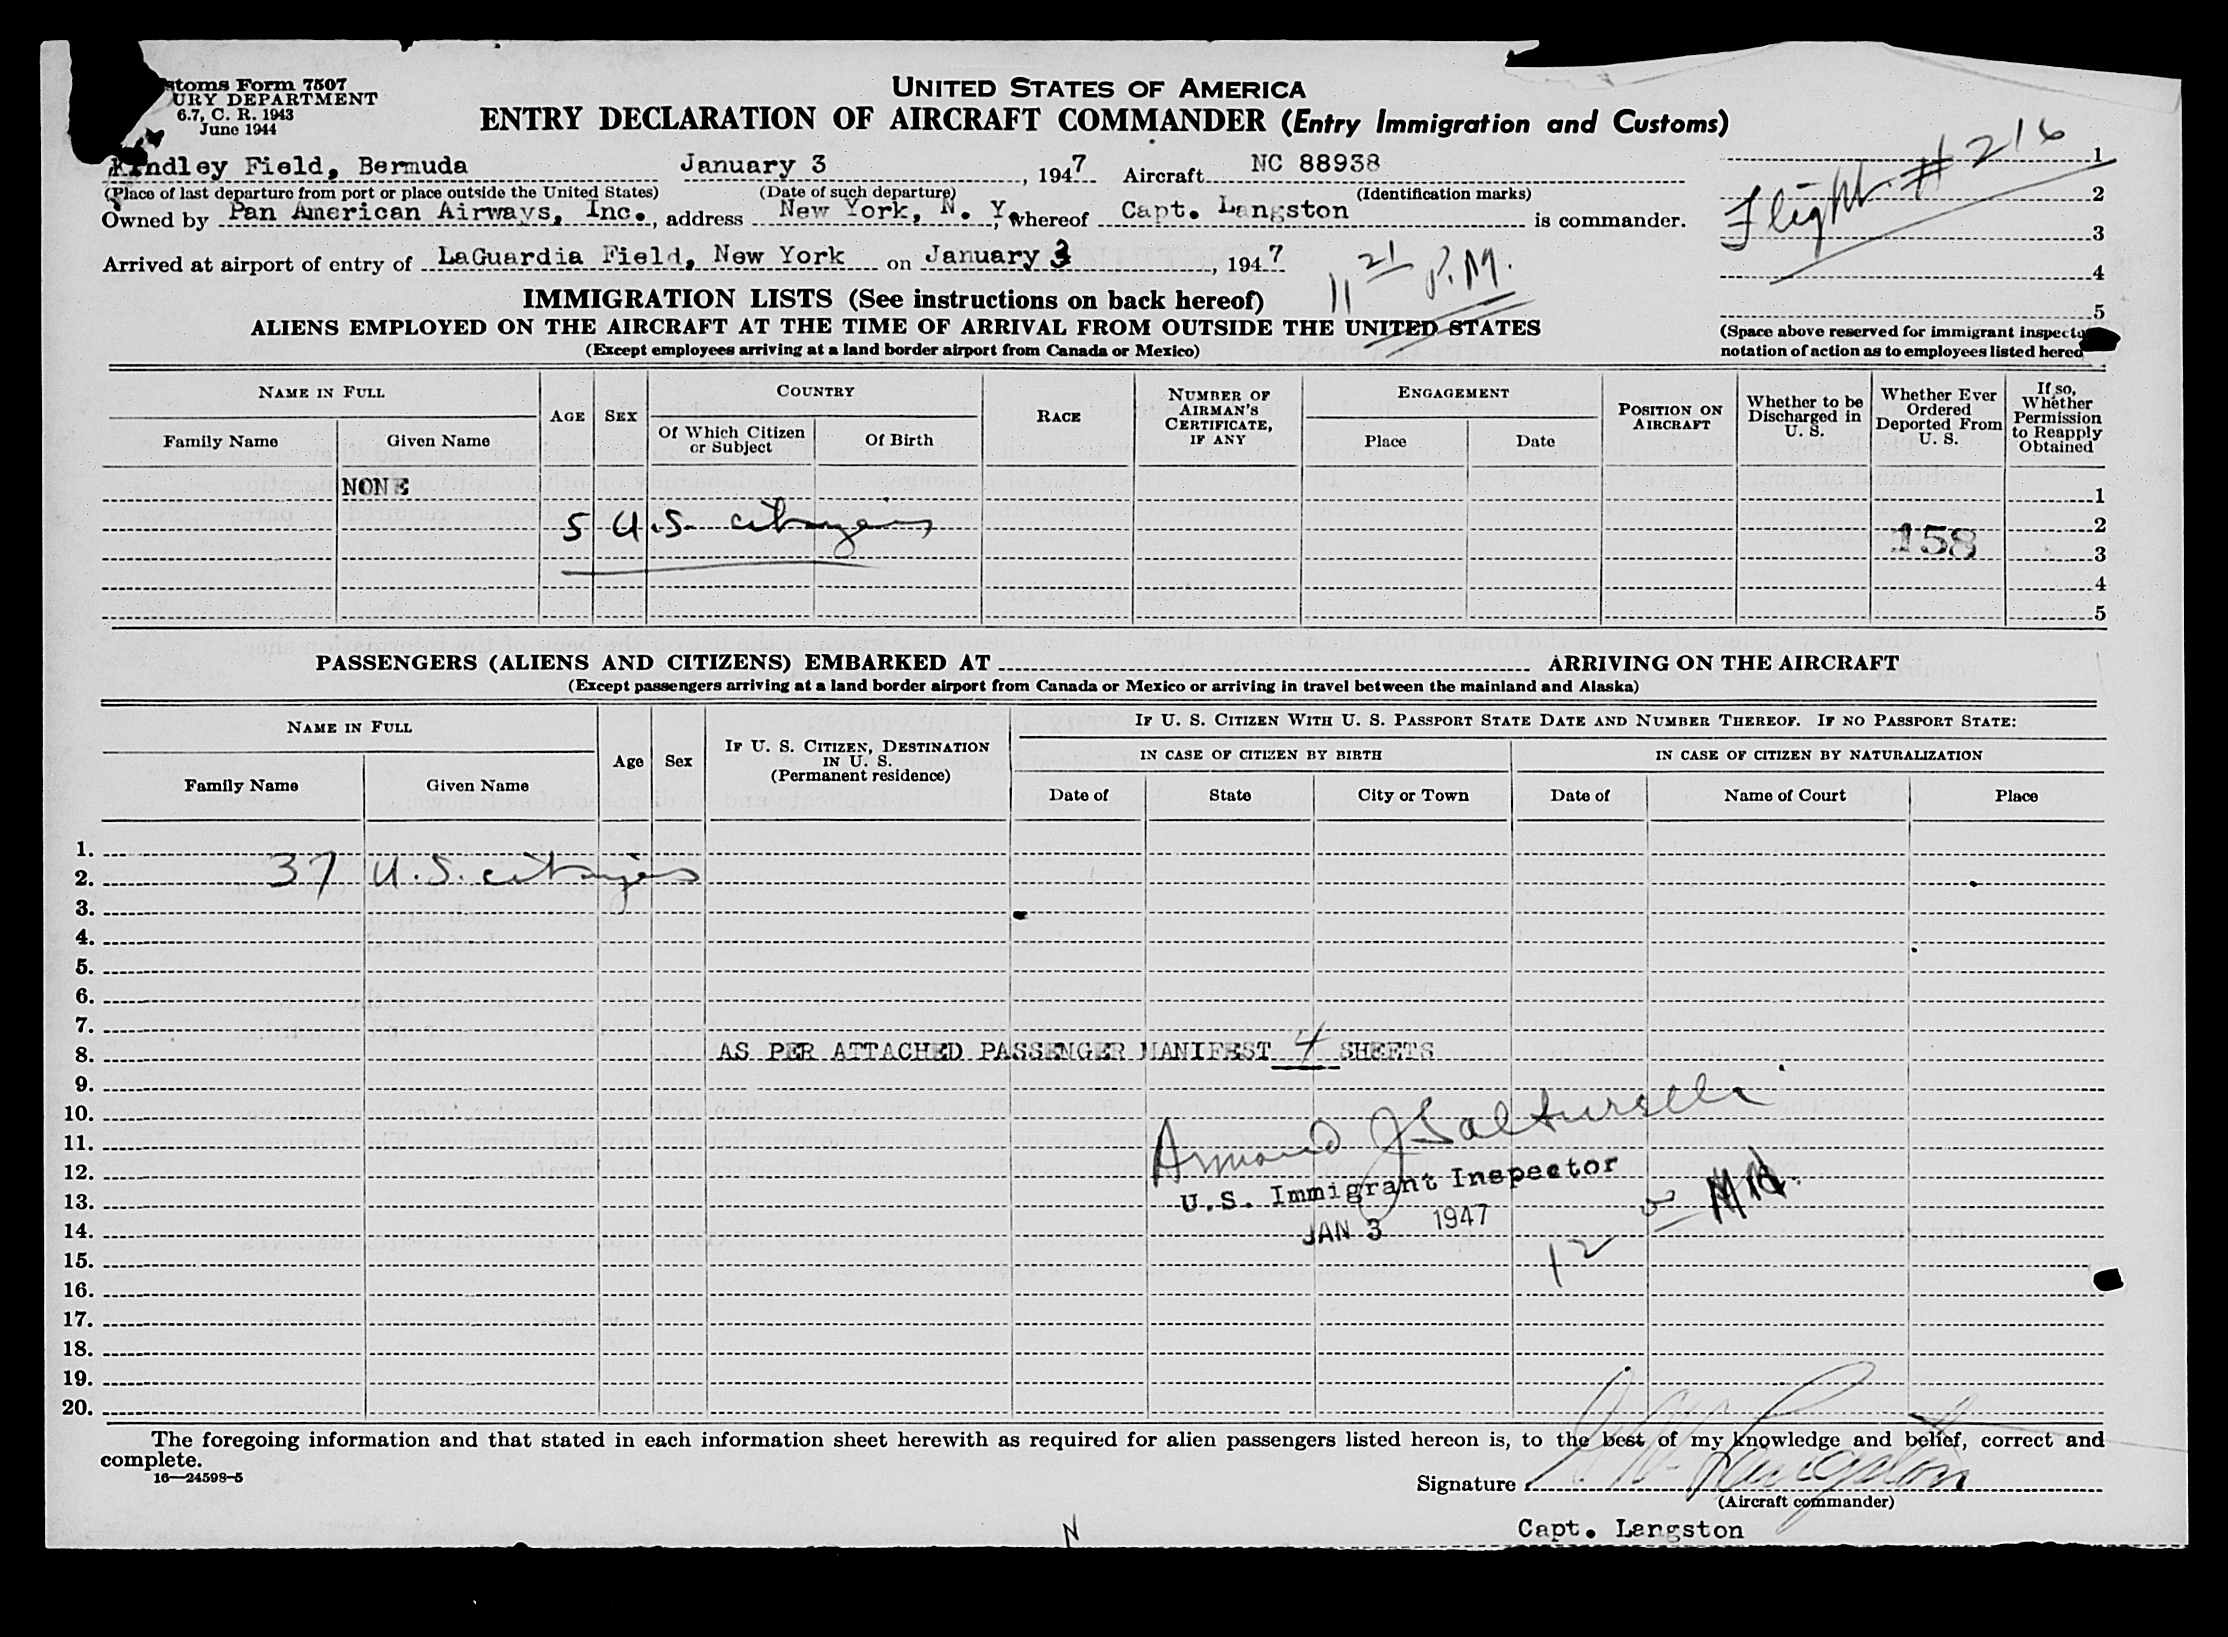 stoms Form 7507
URY DEPARTMENT
6.7, C. R. 1943
June 1944
UNITED STATES OF AMERICA
ENTRY DECLARATION OF AIRCRAFT COMMANDER (Entry Immigration and Customs)
Kindley Field, Bermuda January 3, 1947 Aircraft NC 88938
(Place of last departure from port or place outside the United States) (Date of such departure) (Identification marks)
Owned by Pan American Airways, Inc., address New York, N. Y., whereof Capt. Langston is commander.
Arrived at airport of entry of LaGuardia Field, New York on January 3, 1947
11 21 P.M.
Flight # 216
1
2
3
4
5
(Space above reserved for immigrant inspecto
notation of action as to employees listed hereo
IMMIGRATION LISTS (See instructions on back hereof)
ALIENS EMPLOYED ON THE AIRCRAFT AT THE TIME OF ARRIVAL FROM OUTSIDE THE UNITED STATES
(Except employees arriving at a land border airport from Canada or Mexico)
NAME IN FULL
Family Name Given Name
AGE
SEX
COUNTRY
Of Which Citizen or Subject Of Birth
RACE
NUMBER OF AIRMAN'S CERTIFICATE, IF ANY
ENGAGEMENT
Place Date
POSITION ON AIRCRAFT
Whether to be Discharged in U. S.
Whether Ever Ordered Deported From U. S.
If so, Whether Permission to Reapply Obtained
NONE 1
5 U.S. citizens 2
158 3
4
5
PASSENGERS (ALIENS AND CITIZENS) EMBARKED AT ARRIVING ON THE AIRCRAFT
(Except passengers arriving at a land border airport from Canada or Mexico or arriving in travel between the mainland and Alaska)
NAME IN FULL
Family Name Given Name
Age
Sex
IF U. S. CITIZEN, DESTINATION IN U. S. (Permanent residence)
IF U. S. CITIZEN WITH U. S. PASSPORT STATE DATE AND NUMBER THEREOF. IF NO PASSPORT STATE:
IN CASE OF CITIZEN BY BIRTH IN CASE OF CITIZEN BY NATURALIZATION
Date of State City or Town Date of Name of Court Place
1.
2. 37 U.S. citizens
3.
4.
5.
6.
7.
8. AS PER ATTACHED PASSENGER MANIFEST 4 SHEETS
9.
10.
11. Armand J
12.
13. U.S. Immigrant Inspector
14. JAN 3 1947
12
15.
16.
17.
18.
19.
20.
The foregoing information and that stated in each information sheet herewith as required for alien passengers listed hereon is, to the best of my knowledge and belief, correct and
complete.
16—24598-5
Signature Langston
(Aircraft commander)
Capt. Langston
N